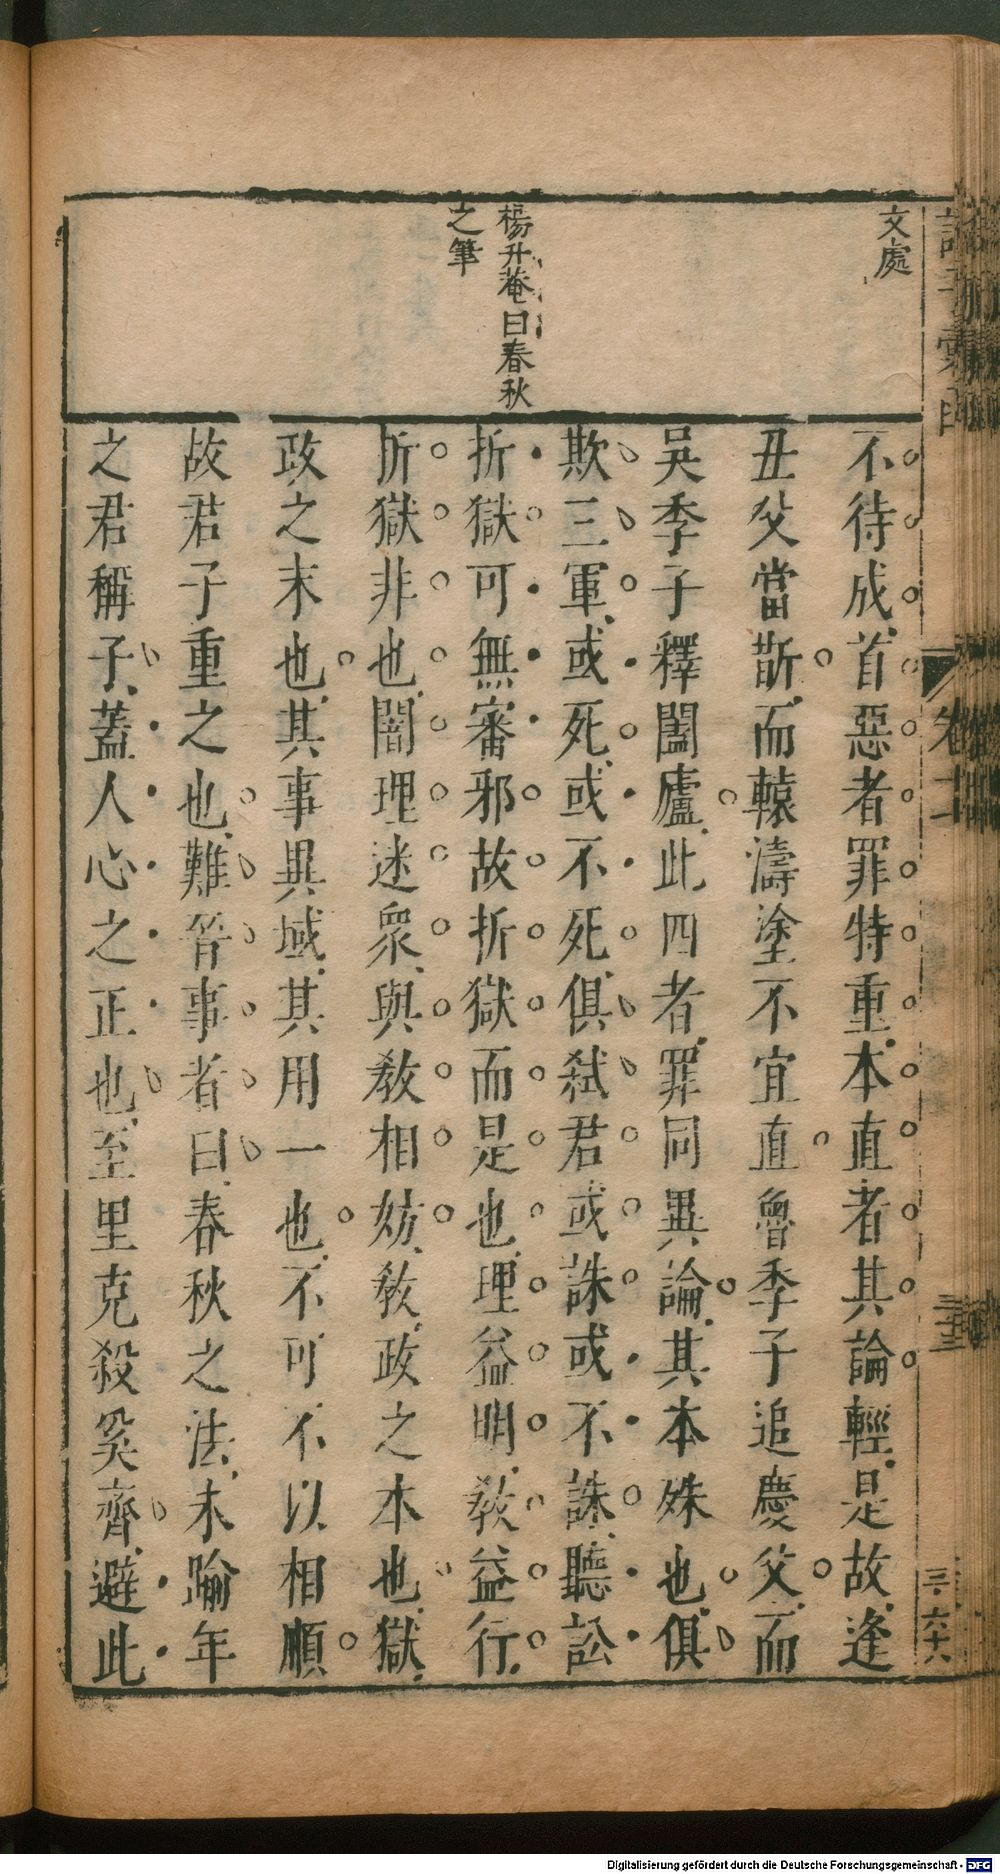 文處
楊升菴曰春秋
之筆
不待成首惡者罪特重本直者其論輕是故逢
丑父當斮而轅濤塗不宜直魯季子追慶父而
吳季子釋闔廬此四者罪同異論其本殊也俱
欺三軍或死或不死俱弑君或誅或不誅聽訟
折獄可無審邪故折獄而是也理益明教益行
折獄非也闇理迷衆與教相妨教政之本也獄
政之末也其事異域其用一也不可不以相順
故君子重之也難晉事者曰春秋之法未踰年
之君稱子蓋人心之正也至里克殺奚齊避此
卷二
三十三
三·六十八
Digitalisierung gefördert durch die Deutsche Forschungsgemeinschaft - DFG